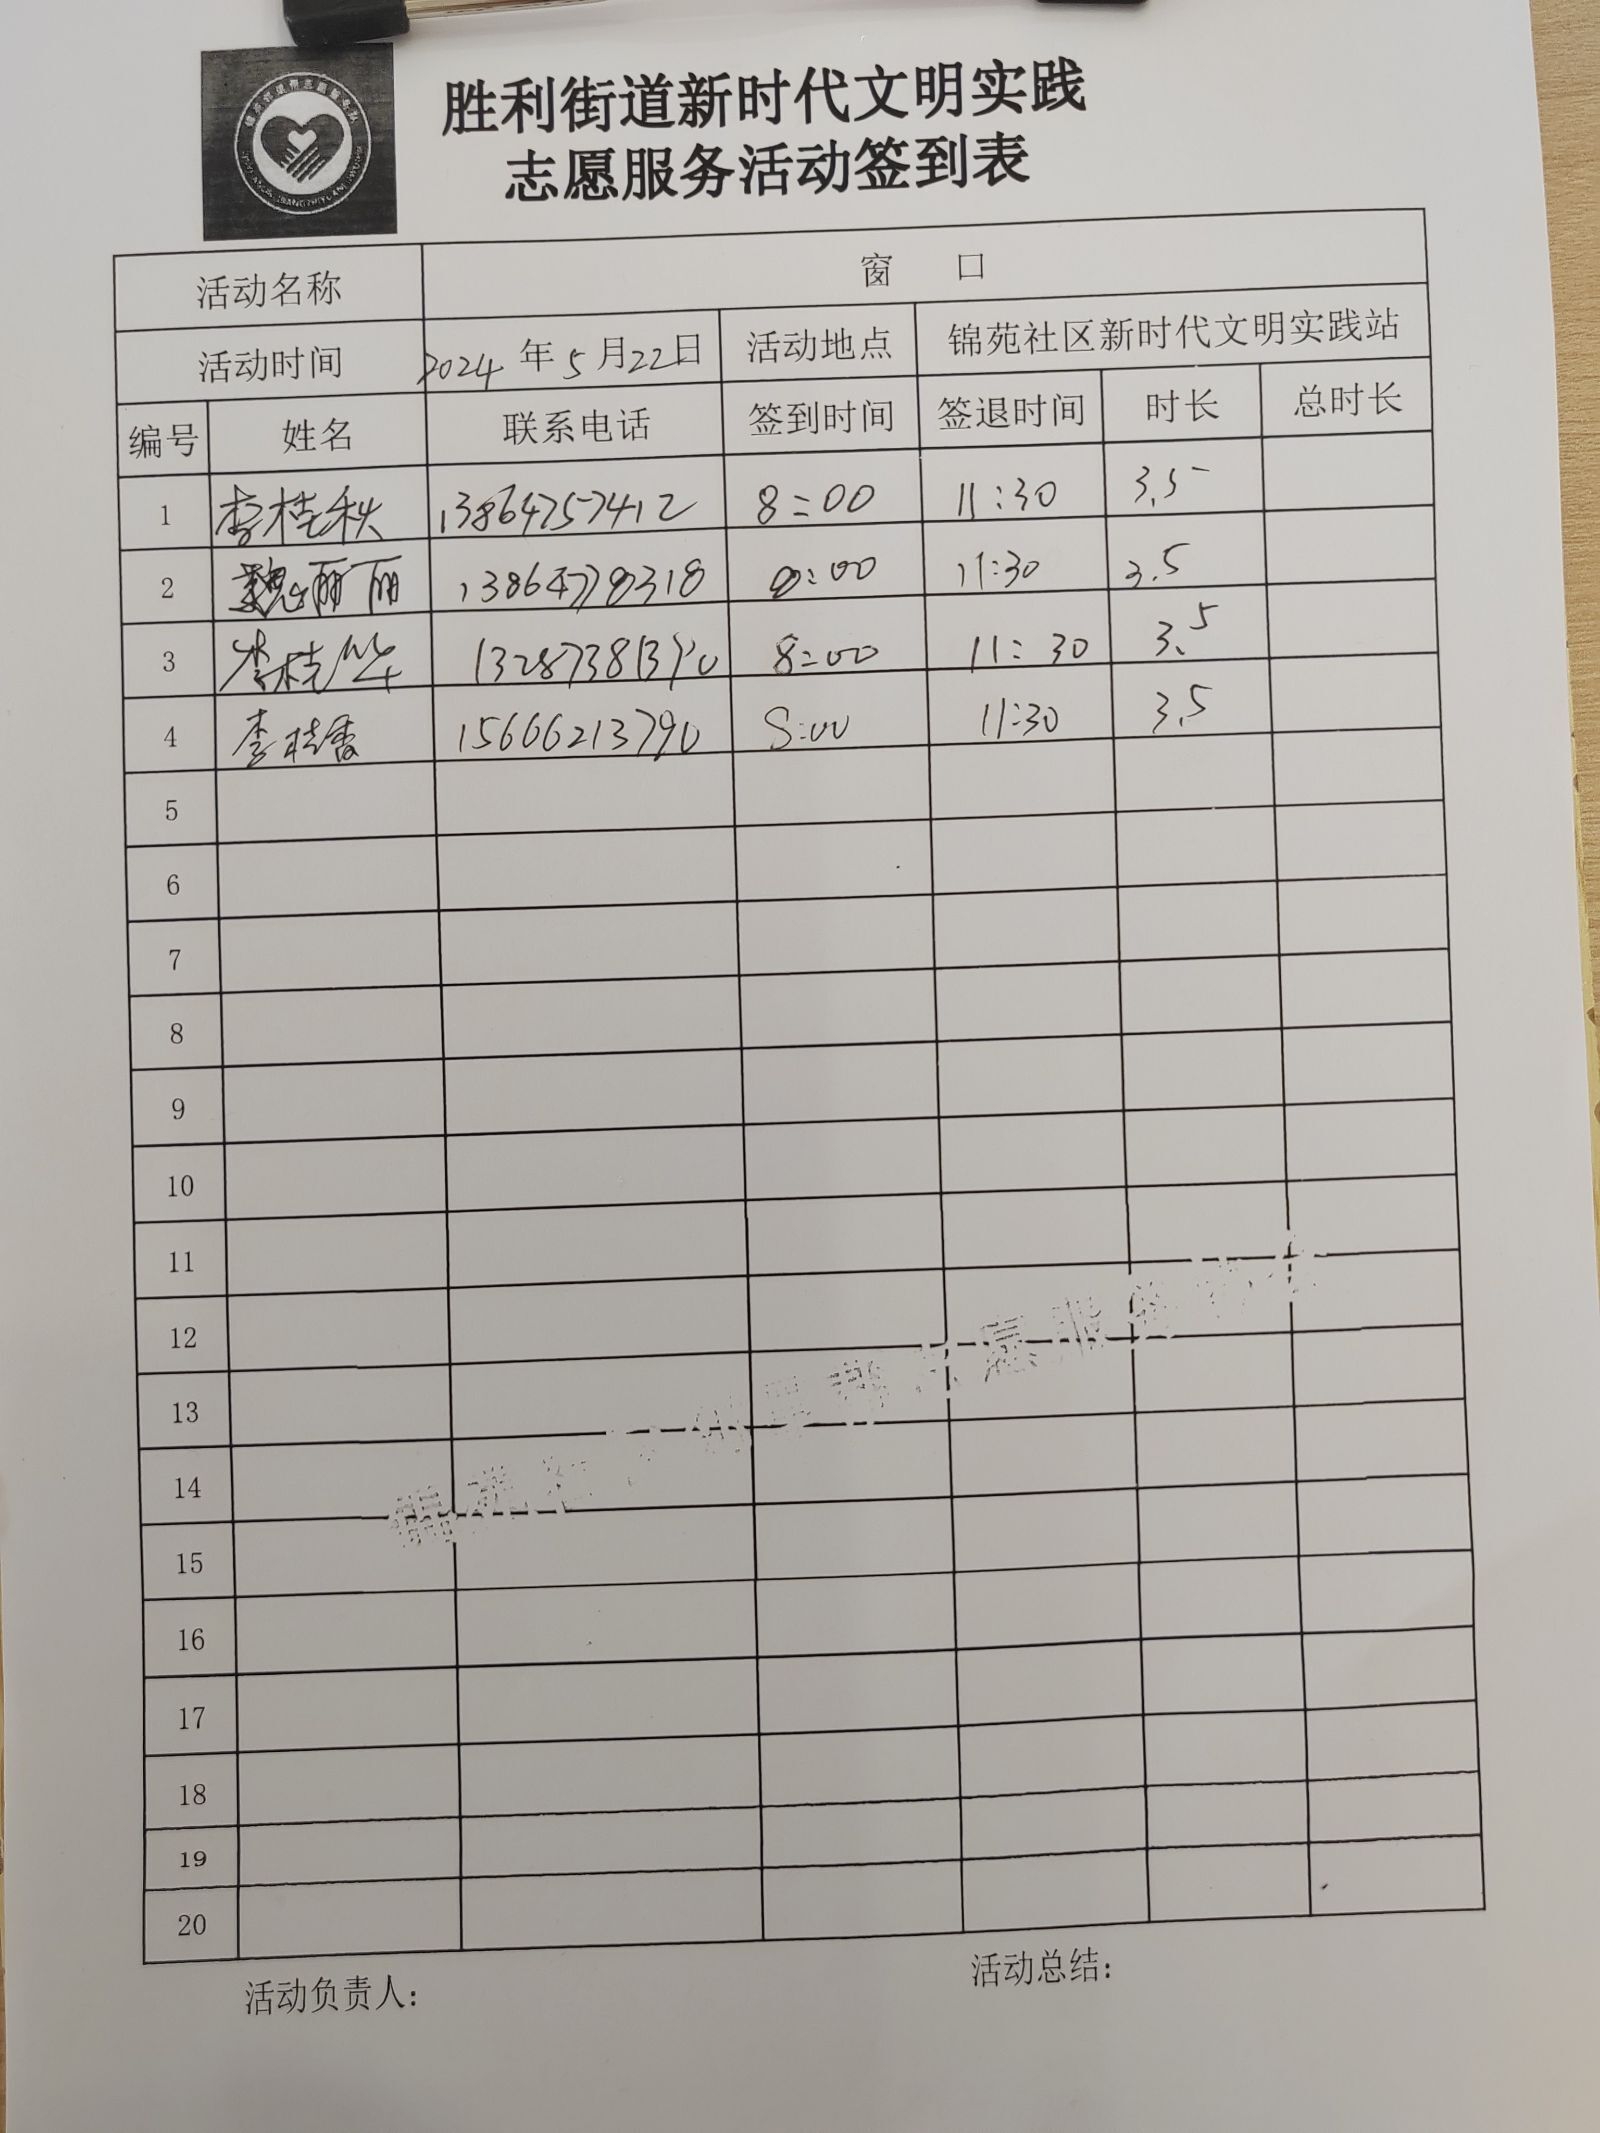 胜利街道新时代文明实践
志愿服务活动签到表
活动名称 窗 口
活动时间 2024年5月22日 活动地点 锦苑社区新时代文明实践站
编号 姓名 联系电话 签到时间 签退时间 时长 总时长
1 李桂秋 13864757412 8:00 11:30 3.5
2 魏丽丽 13864778318 8:00 11:30 3.5
3 李桂华 13287381390 8:00 11:30 3.5
4 李桂香 15666213790 8:00 11:30 3.5
5
6
7
8
9
10
11
12
13
14
15
16
17
18
19
20
活动负责人: 活动总结: